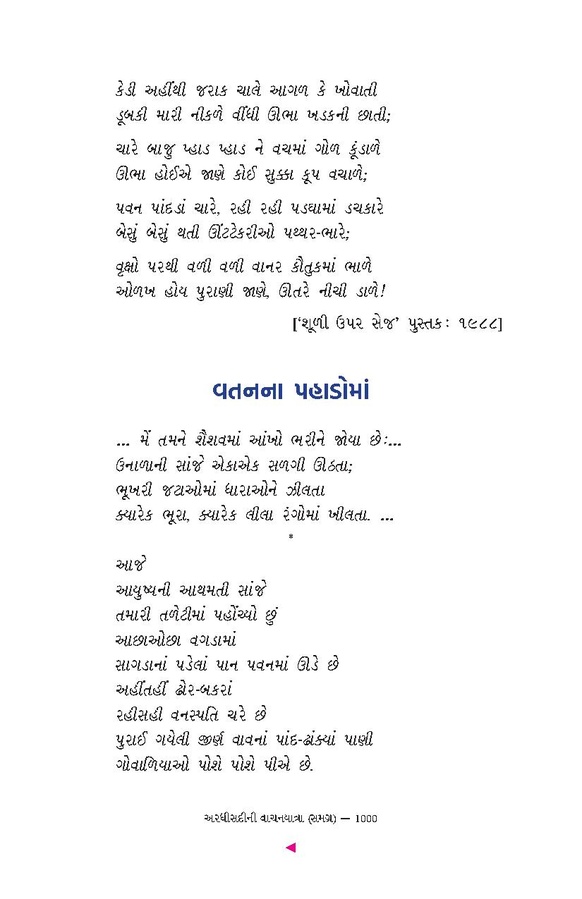 કેડી અહીંથી જરાક ચાલે આગળ કે ખોવાતી
ડૂબકી મારી નીકળે વીંધી ઊભા ખડકની છાતી;
ચારે બાજુ પ્હાડ પ્હાડ ને વચમાં ગોળ કૂંડાળે
ઊભા હોઈએ જાણે કોઈ સુક્કા કૂપ વચાળે;
પવન પાંદડાં ચારે, રહી રહી પડઘામાં ડચકારે
બેસું બેસું થતી ઊંટટેકરીઓ પથ્થર-ભારે;
વૃક્ષો પરથી વળી વળી વાનર કૌતુકમાં ભાળે
ઓળખ હોય પુરાણી જાણે, ઊતરે નીચી ડાળે!
[‘શૂળી ઉપર સેજ’ પુસ્તક: ૧૯૮૮]
વતનના પહાડોમાં
... મેં તમને શૈશવમાં આંખો ભરીને જોયા છે:...
ઉનાળાની સાંજે એકાએક સળગી ઊઠતા;
ભૂખરી જટાઓમાં ધારાઓને ઝીલતા
ક્યારેક ભૂરા, ક્યારેક લીલા રંગોમાં ખીલતા. ...
*
આજે
આયુષ્યની આથમતી સાંજે
તમારી તળેટીમાં પહોંચ્યો છું
આછાઓછા વગડામાં
સાગડાનાં પડેલાં પાન પવનમાં ઊડે છે
અહીંતહીં ઢોર-બકરાં
રહીસહી વનસ્પતિ ચરે છે
પુરાઈ ગયેલી જીર્ણ વાવનાં પાંદ-ઢાંક્યાં પાણી
ગોવાળિયાઓ પોશે પોશે પીએ છે.
અરધીસદીની વાચનયાત્રા (સમગ્ર) — 1000